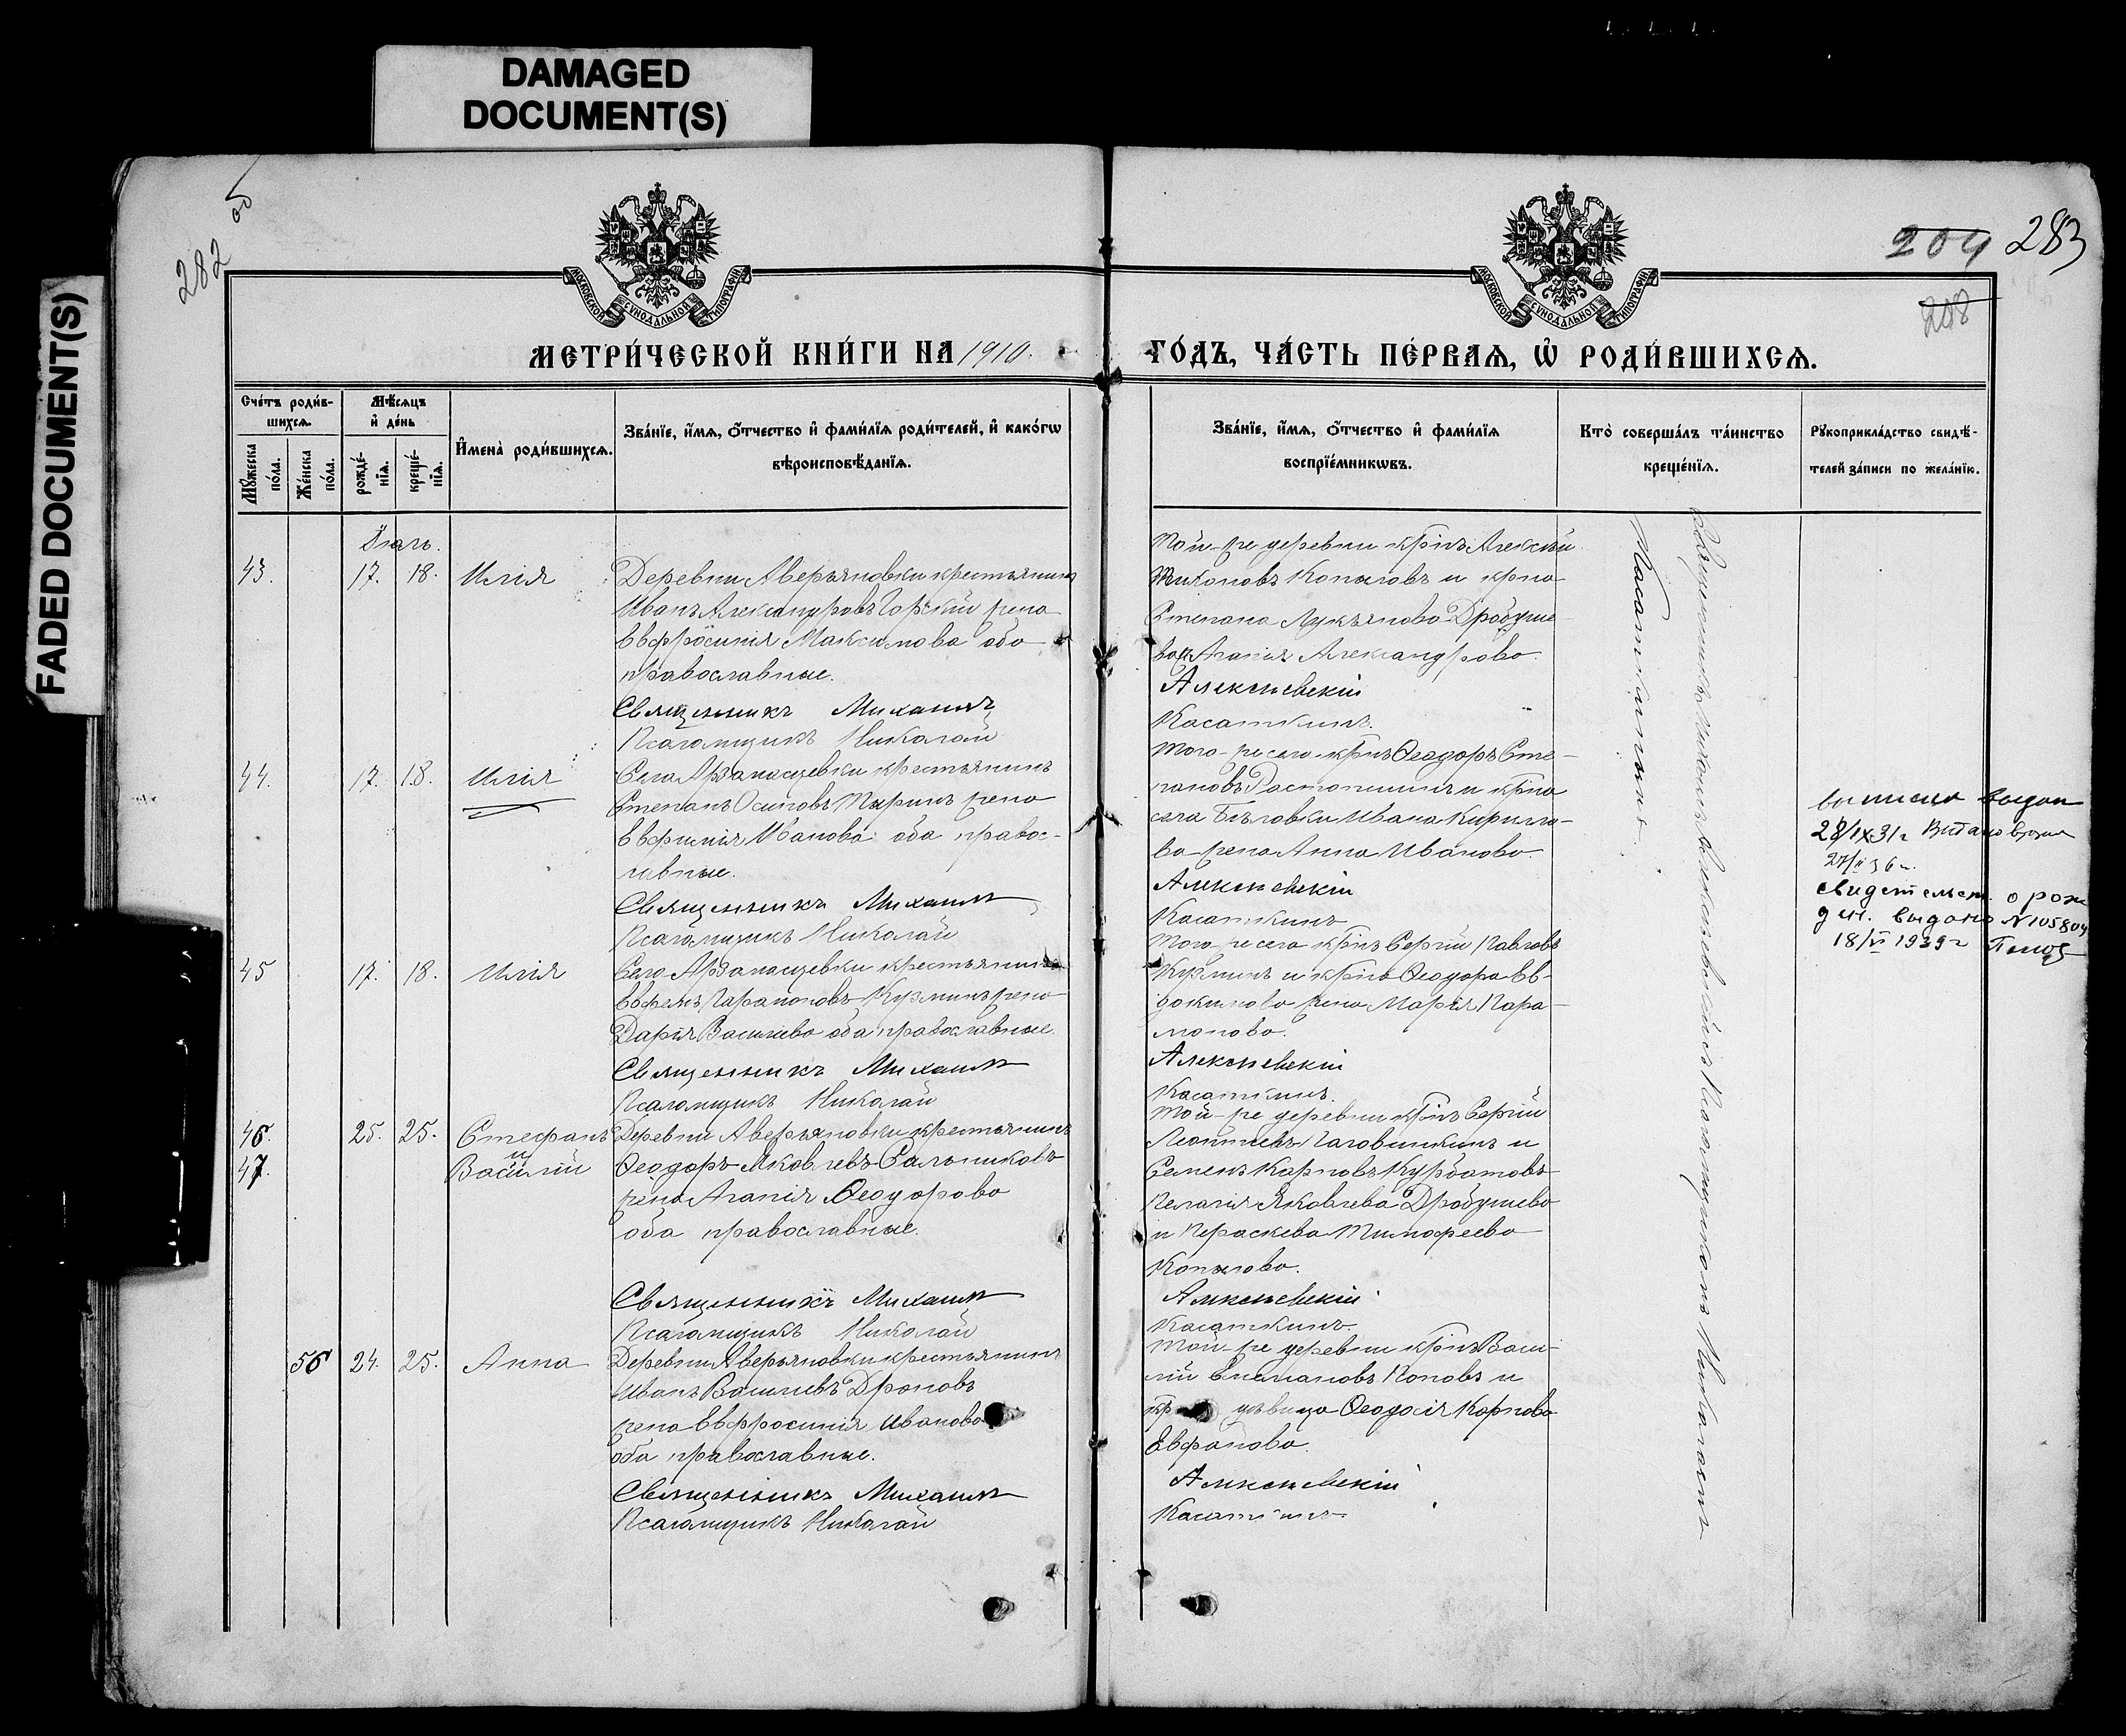 DAMAGED
DOCUMENT(S)
FADED DOCUMENT(S)
282 об
204 283
208
МОСКОВСКОЙ СѴНОДАЛЬНОЙ ТИПОГРАФІИ
МОСКОВСКОЙ СѴНОДАЛЬНОЙ ТИПОГРАФІИ
МЕТРИ́ЧЕСКОЙ КНИ́ГИ НА 1910.
ГО́ДЪ, ЧА́СТЬ ПЕ́РВАѦ, Ѡ҆ РОДИ́ВШИХСѦ.
Сче́тъ роди́в-
шихсѧ.
Мꙋ́жеска
по́ла.
Же́нска
по́ла.
Мѣ́сѧцъ
и҆ де́нь
рожде́-
нїѧ.
креще́-
нїѧ.
И҆мена̀ роди́вшихсѧ.
Зва́нїе, и҆́мѧ, ѻ҆́тчество и҆ фами́лїѧ роди́телей, и҆ како́гѡ
вѣроисповѣ́данїѧ.
Зва́нїе, и҆́мѧ, ѻ҆́тчество и҆ фами́лїѧ
воспрїе́мникѡвъ.
Кто̀ соверша́лъ та́инство
креще́нїѧ.
Рꙋкоприкла́дство свидѣ́-
телей за́писи по жела́нїю.
43. 17. 18. Илія
Деревни Аверьяновки крестьянинъ
Иванъ Александровъ жена
Евфросинія Максимова оба
православные.
Священникъ Михаилъ
Псаломщикъ Николай
Той-же деревни крнъ Алексѣй
Тихоновъ Копыловъ и крна
Степана Лукьянова Дробуше
ва Агапія Александрова.
Алексѣевскій
Касаткинъ.
44. 17. 18. Илія
Села крестьянинъ
Степанъ Осиповъ Тыринъ жена
Евфимія Иванова оба правос-
лавные.
Священникъ Михаилъ
Псаломщикъ Николай
Того-же села крнъ Ѳеодоръ Сте-
пановъ Растопшинъ и крна
села Бѣловки Ивана Кирилло-
ва жена Анна Иванова.
Алексѣевскій
Касаткинъ
выписка выдан
28/IX 31 г
27/II 36 г.
свидетельст. о рож
ден. выдано N 105804
18/VI 1939 г
45 17. 18. Илія
Села крестьянинъ
Евфимъ Парамоновъ Курминъ жена
Дарія Васильева оба православные.
Священникъ Михаилъ
Псаломщикъ Николай
Того-же села крнъ Сергій Павловъ
Курминъ и крна Ѳеодора Ев-
докимова жена Марія Пара-
монова.
Алексѣевскій
Касаткинъ.
46. 25. 25. Стефанъ
и
47. Василій
Деревни Аверьяновки крестьянинъ
Ѳеодоръ Яковлевъ Сальниковъ
жена Агапія Ѳеодорова
оба православные.
Священникъ Михаилъ
Псаломщикъ Николай
Той-же деревни крнъ Сергій
Леонтьевъ и
Семенъ Карповъ Курбатовъ
Пелагія Яковлева Дробушева
и Параскева Тимофеева
Копылова.
Алексѣевскій
Касаткинъ.
56 24. 25. Анна
Деревни Аверьяновки крестьянинъ
Иванъ Васильевъ Дроновъ
жена Евфросинія Иванова
оба православные.
Священникъ Михаилъ
Псаломщикъ Николай
Той-же деревни крнъ Васи-
лій Поповъ и
дѣвица Ѳеодосія Карпова
Евфанова.
Алексѣевскій
Касаткинъ
Священникъ Михаилъ Алексѣевскій съ Псаломщикомъ Николаемъ
Касаткинымъ.